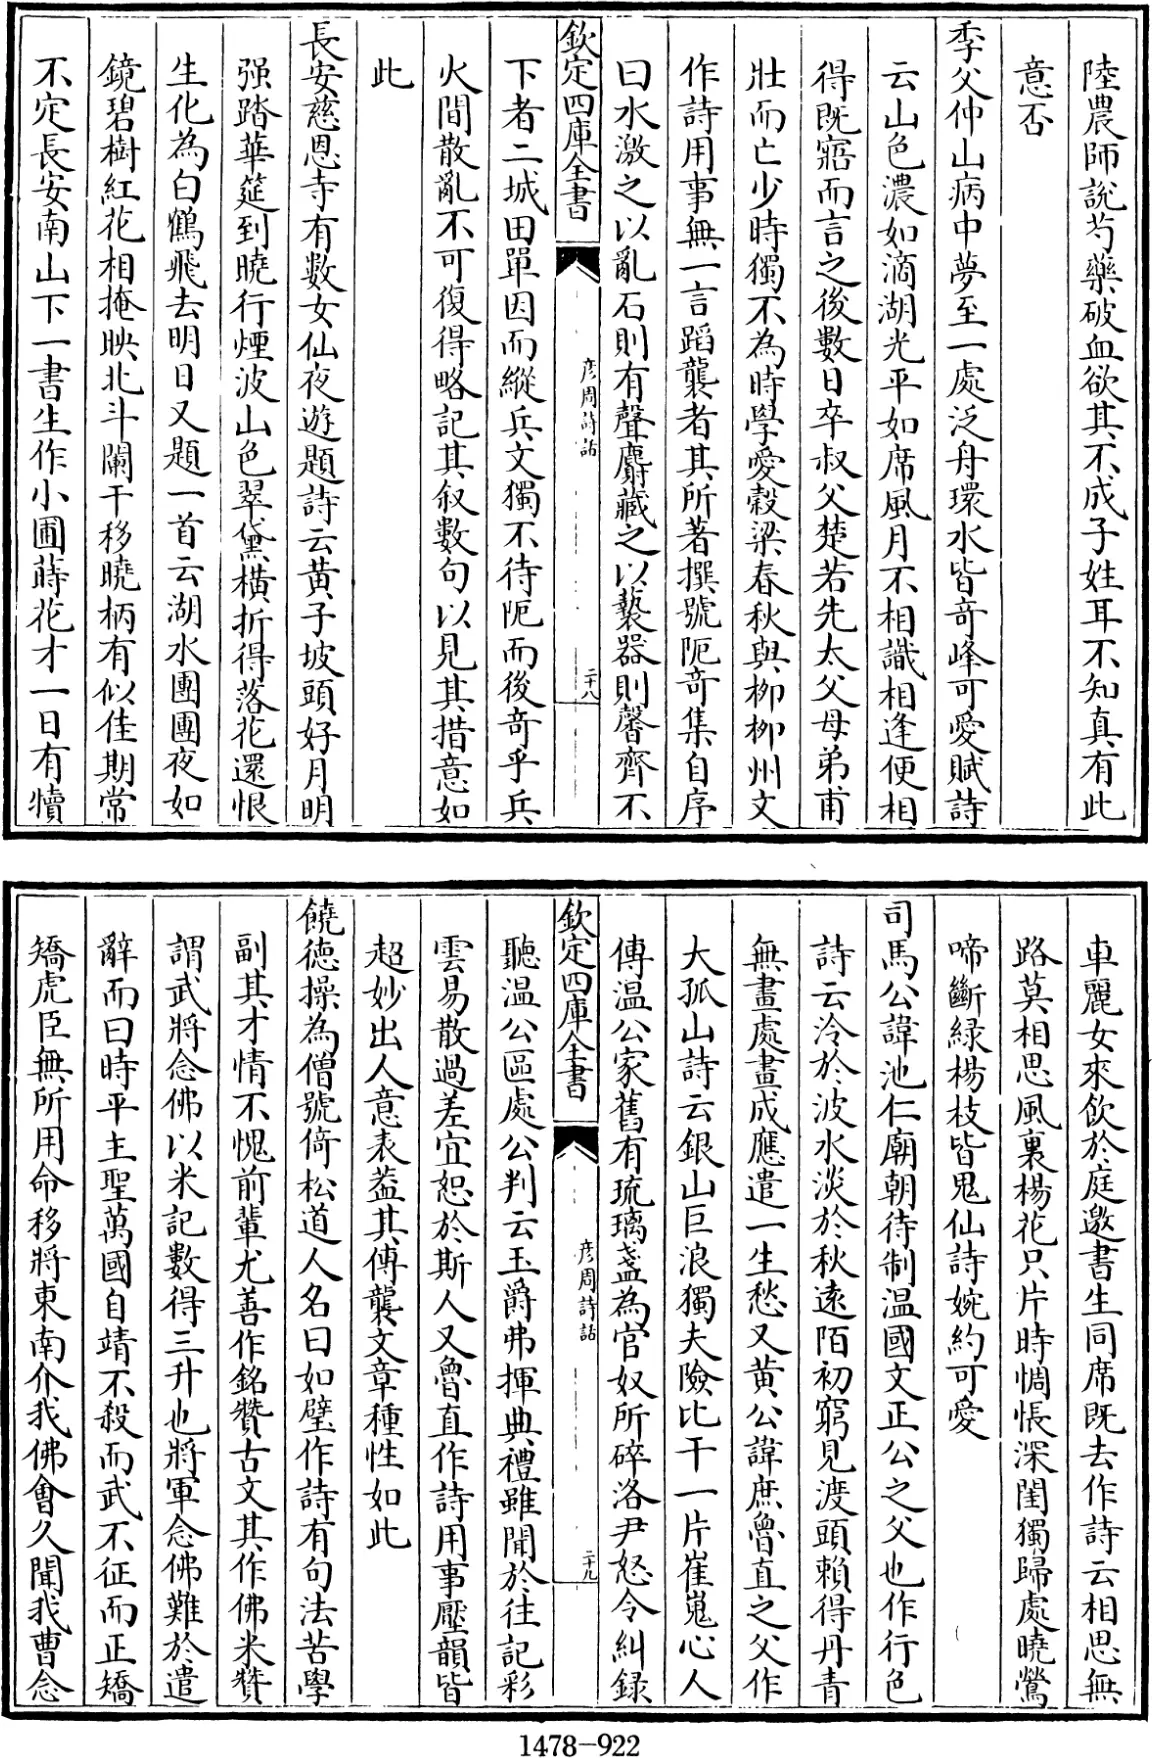 陸農師說芍藥破血欲其不成子姓耳不知真有此
意否
季父仲山病中夢至一處泛舟環水皆奇峰可愛賦詩
云山色濃如滴湖光平如席風月不相識相逢便相
得既寤而言之後數日卒叔父楚若先太父母弟甫
壯而亡少時獨不為時學愛穀梁春秋與柳柳州文
作詩用事無一言蹈襲者其所著撰號阨奇集自序
曰水激之以亂石則有聲麝藏之以褻器則馨齊不
欽定四庫全書
彦周詩話
二十八
下者二城田單因而縱兵文獨不待阨而後奇乎兵
火間散亂不可復得略記其叙數句以見其措意如
此
長安慈恩寺有數女仙夜遊題詩云黄子坡頭好月明
强踏華筵到曉行煙波山色翠黛橫折得落花還恨
生化為白鶴飛去明日又題一首云湖水團團夜如
鏡碧樹紅花相掩映北斗闌干移曉柄有似佳期常
不定長安南山下一書生作小圃蒔花才一日有犢
車麗女來飲於庭邀書生同席既去作詩云相思無
路莫相思風裏楊花只片時惆悵深閨獨歸處曉鶯
啼斷緑楊枝皆鬼仙詩婉約可愛
司馬公諱池仁廟朝待制温國文正公之父也作行色
詩云冷於波水淡於秋遠陌初窮見渡頭賴得丹青
無畫處畫成應遣一生愁又黄公諱庶魯直之父作
大孤山詩云銀山巨浪獨夫險比干一片崔嵬心人
傳温公家舊有琉璃盞為官奴所碎洛尹怒令糾録
欽定四庫全書
彦周詩話
二十九
聽温公區處公判云玉爵弗揮典禮雖聞於往記彩
雲易散過差宜恕於斯人又魯直作詩用事壓韻皆
超妙出人意表葢其傳襲文章種性如此
饒德操為僧號倚松道人名曰如璧作詩有句法苦學
副其才情不愧前輩尤善作銘贊古文其作佛米贊
謂武將念佛以米記數得三升也將軍念佛難於遣
辭而曰時平主聖萬國自靖不殺而武不征而正矯
矯虎臣無所用命移將東南介我佛會久聞我曹念
1478-922